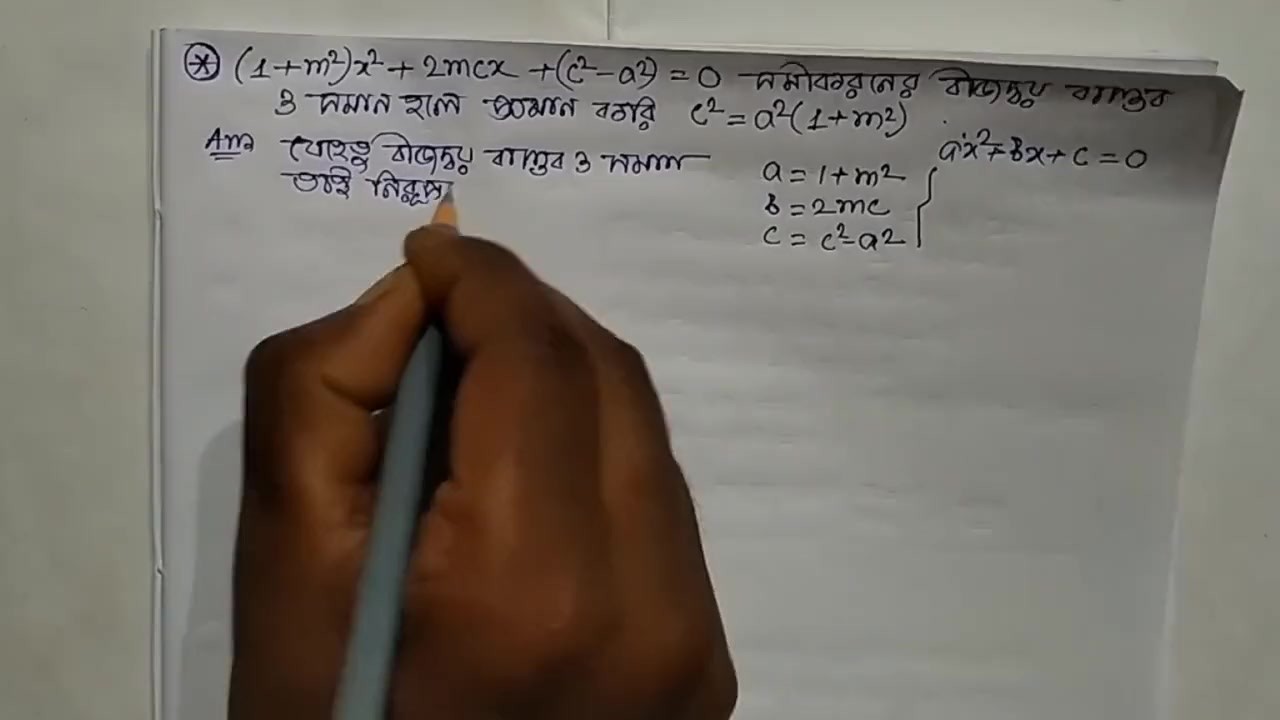 (1+m²)x² + 2mcx + (c²-a²) = 0 সমীকরনের বীজদ্বয় বাস্তব
ও সমান হলে প্রমান করি c² = a²(1+m²)
Ans যেহেতু বীজদ্বয় বাস্তব ও সমান
তাই নিরূপ
ax²+bx+c=0
a = 1+m²
b = 2mc
c = c²-a²